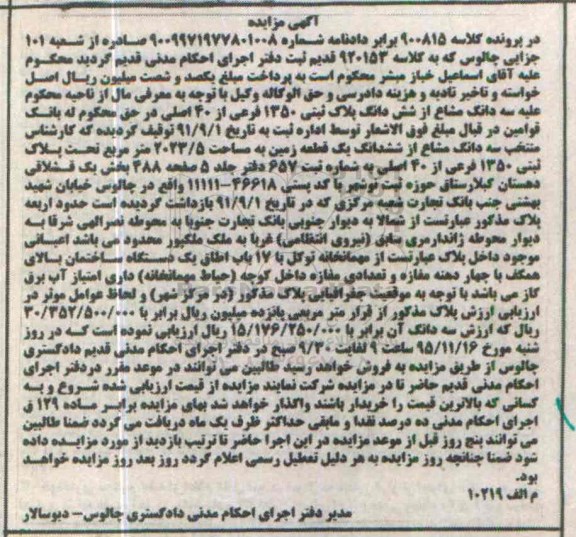 آگهی مزایده
در پرونده کلاسه ۹۰۰۸۱۵ برابر دادنامه شماره ۹۰۰۹۹۷۱۹۷۷۸۰۱۰۰۸ صادره از شعبه ۱۰۱
جزایی چالوس که به کلاسه ۹۲۰۱۵۳ قدیم ثبت دفتر اجرای احکام مدنی قدیم گردید محکوم
علیه آقای اسماعیل خباز مبشر محکوم است به پرداخت مبلغ یکصد و شصت میلیون ریال اصل
خواسته و تاخیر تادیه و هزینه دادرسی و حق الوکاله وکیل با توجه به معرفی مال از ناحیه محکوم
علیه سه دانگ مشاع از شش دانگ پلاک ثبتی ۱۳۵۰ فرعی از ۴۰ اصلی در حق محکوم له بانک
قوامین در قبال مبلغ فوق الاشعار توسط اداره ثبت به تاریخ ۹۱/۹/۱ توقیف گردیده که کارشناس
منتخب سه دانگ مشاع از ششدانگ یک قطعه زمین به مساحت ۲۰۲۳/۵ متر مربع تحت پلاک
ثبتی ۱۳۵۰ فرعی از ۴۰ اصلی به شماره ثبت ۶۵۷ دفتر جلد ۵ صفحه ۳۸۸ بخش یک قشلاقی
دهستان کلارستاق حوزه ثبت نوشهر با کد پستی ۴۶۶۱۸-۱۱۱۱۱ واقع در چالوس خیابان شهید
بهشتی جنب بانک تجارت شعبه مرکزی که در تاریخ ۹۱/۹/۱ بازداشت گردیده است حدود اربعه
پلاک مذکور عبارتست از شمالا به دیوار جنوبی بانک تجارت جنوبا به محوطه نصرالهی شرقا به
دیوار محوطه ژاندارمری سابق (نیروی انتظامی) غربا به ملک ملکپور محدود می باشد اعیانی
موجود داخل پلاک عبارتست از مهمانخانه توکل با ۱۷ باب اطاق یک دستگاه ساختمان بالای
همکف با چهار دهنه مغازه و تعدادی مغازه داخل کوچه (حیاط مهمانخانه) داری امتیاز آب برق
گاز می باشد با توجه به موقعیت جغرافیایی پلاک مذکور (در مرکز شهر) و لحاظ عوامل موثر در
ارزیابی ارزش پلاک مذکور از قرار متر مربعی پانزده میلیون ریال برابر با ۳۰/۳۵۲/۵۰۰/۰۰۰
ریال که ارزش سه دانگ آن برابر با ۱۵/۱۷۶/۲۵۰/۰۰۰ ریال ارزیابی نموده است که در روز
شنبه مورخ ۹۵/۱۱/۱۶ ساعت ۹ لغایت ۹/۳۰ صبح در دفتر اجرای احکام مدنی قدیم دادگستری
چالوس از طریق مزایده به فروش خواهد رسید طالبین می توانند در موعد مقرر دردفتر اجرای
احکام مدنی قدیم حاضر تا در مزایده شرکت نمایند مزایده از قیمت ارزیابی شده شروع و به
کسانی که بالاترین قیمت را خریدار باشند واگذار خواهد شد بهای مزایده برابر ماده ۱۲۹ ق
اجرای احکام مدنی ده درصد نقدا و مابقی حداکثر ظرف یک ماه دریافت می گردد ضمنا طالبین
می توانند پنج روز قبل از موعد مزایده در این اجرا حاضر تا ترتیب بازدید از مورد مزایده داده
شود ضمنا چنانچه روز مزایده به هر دلیل تعطیل رسمی اعلام گردد روز بعد روز مزایده خواهد
بود.
م الف ۱۰۲۱۹
مدیر دفتر اجرای احکام مدنی دادگستری چالوس- دیوسالار